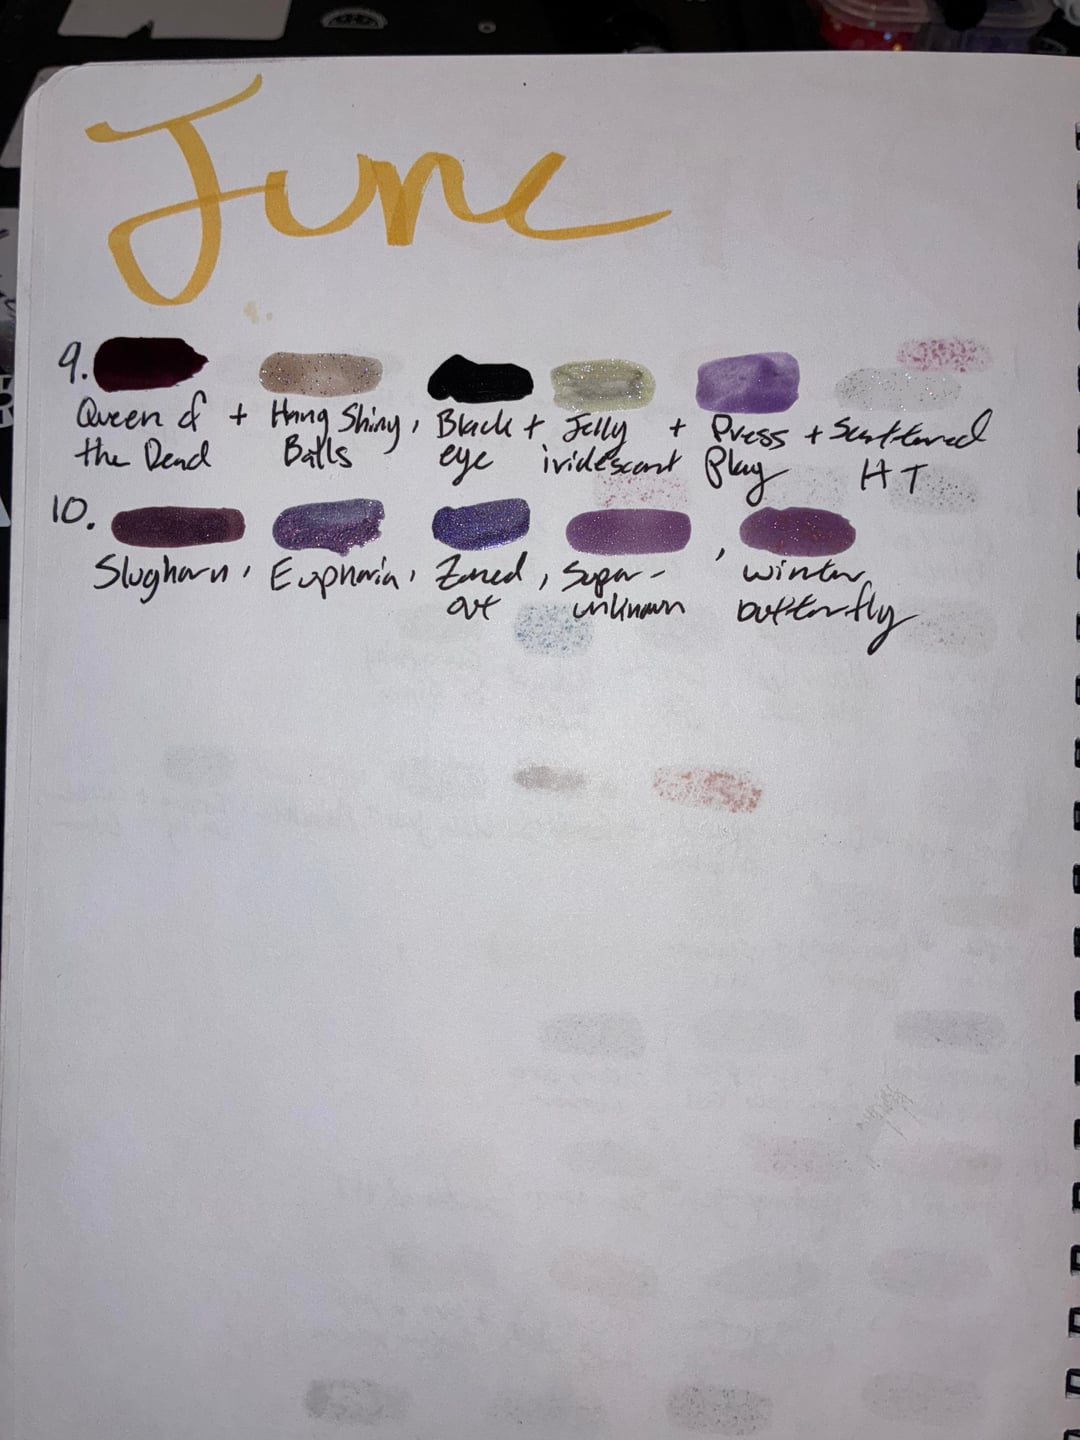 June
9.
Queen of + Hang Shiny, Black + Jelly + Press + Scattered
the Dead Balls eye iridescent Play HT
10.
Slughorn, Euphoria, Zoned, Super- , winter
out unknown butterfly